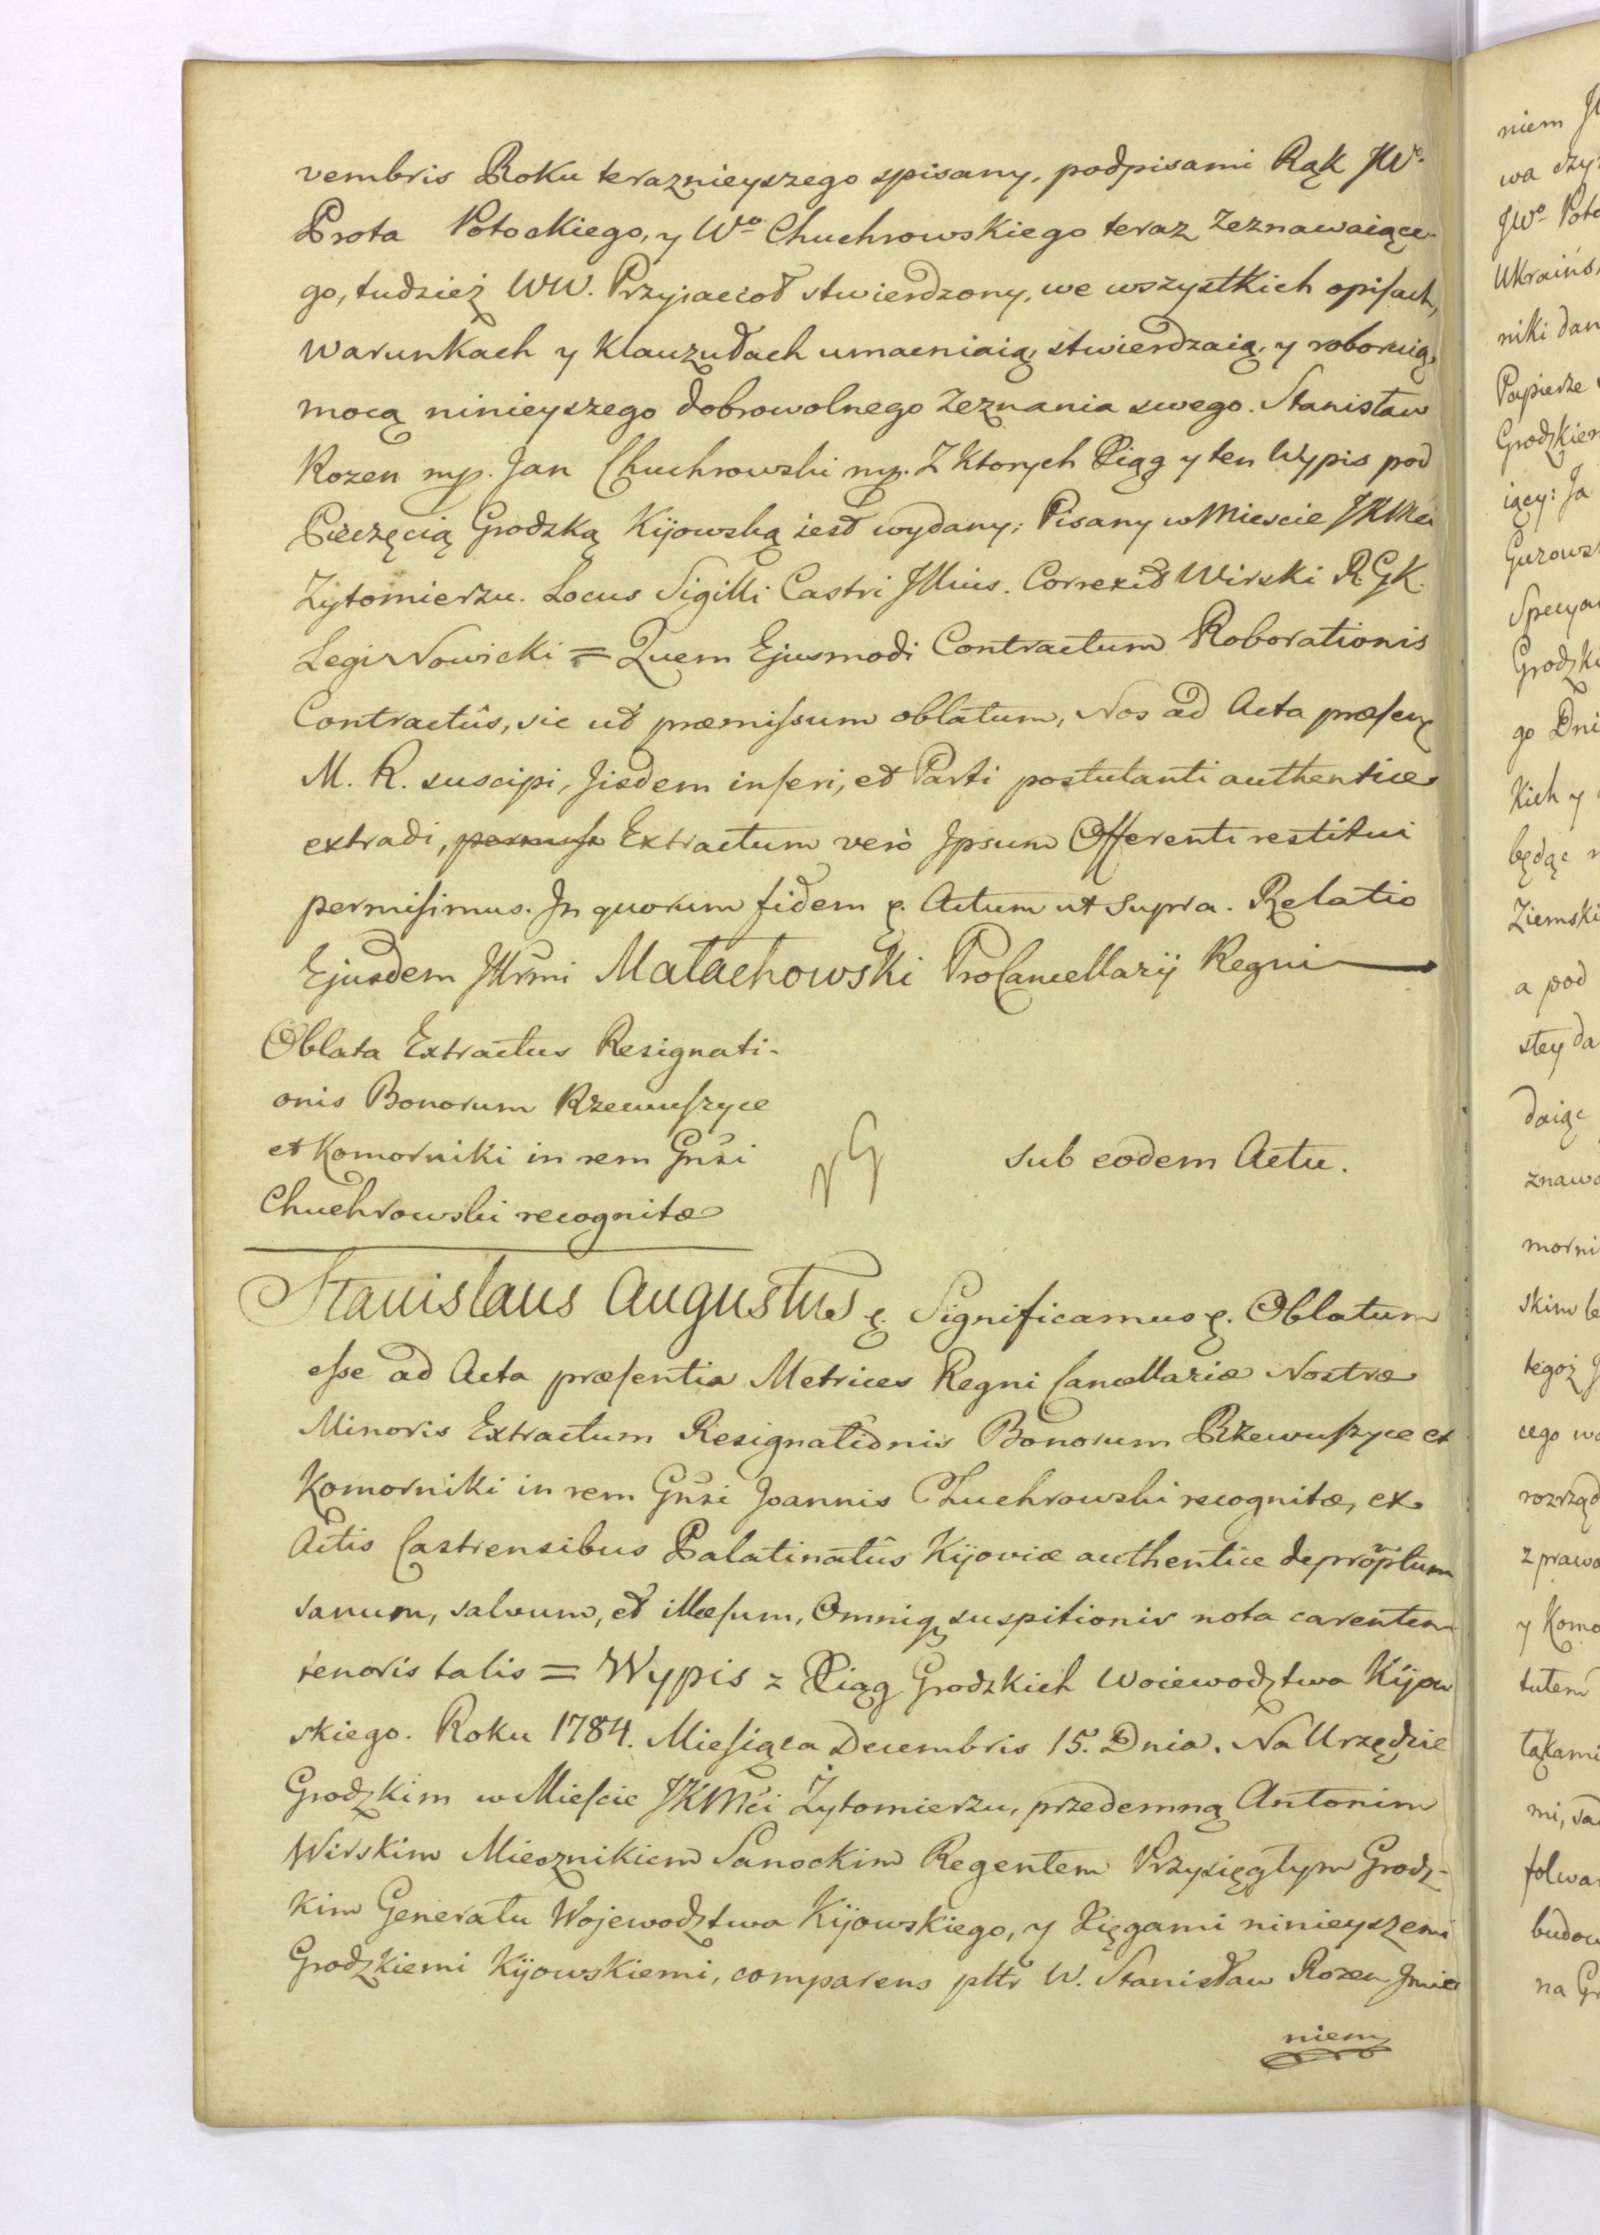 vembris Roku teraznieyszego spisany, podpisami Rąk JWo.
Prota Potockiego, y Wo. Chuchrowskiego teraz zeznawaiące-
go, tudzież WW. Przyiacioł stwierdzony, we wszystkich opisach,
warunkach y Klauzułach umacniaią, stwierdzaią, y roboruią,
mocą ninieyszego dobrowolnego Zeznania swego. Stanisław
Rozen mp. Jan Chuchrowski mp. Z Ktorych Xiąg y ten Wypis pod
Pieczęcią Grodzką Kijowską iest wydany; Pisany w Miescie JKMci
Zytomierzu. Locus Sigilli Castri Illius. Correxit Wirski R.G.K.
Legi Nowicki = Quem Ejusmodi Contractum Roborationis
Contractûs, sic ut præmissum oblatum, Nos ad Acta præsen:
M. R. suscipi, Jisdem inseri, et Parti postulanti authentice
extradi, Extractum verò Jpsum Offerenti restitui
permisimus. In quorum fidem &. Actum ut supra. Relatio
Ejusdem Illrmi Małachowski ProCancellarij Regni
Oblata Extractus Resignati-
onis Bonorum Rzewuszyce
et Komorniki in rem Gnsi
Chuchrowski recognitæ
sub eodem Actu.
Stanislaus Augustus &. Significamus &. Oblatum
esse ad Acta præsentia Metrices Regni Cancellariæ Nostræ
Minoris Extractum Resignationis Bonorum Rzewuszyce et
Komorniki in rem Gnsi Joannis Chuchrowski recognitæ, ex
Actis Castrensibus Palatinatûs Kijoviæ authentice depromptum
sanum, salvum, et illæsum, Omniq; suspitionis nota carentem
tenoris talis = Wypis z Xiąg Grodzkich Woiewodztwa Kijow
skiego. Roku 1784. Miesiąca Decembris 15. Dnia. Na Urzędzie
Grodzkim w Miescie JKMci Żytomierzu, przedemną Antonim
Wirskim Miecznikiem Sanockim Regentem Przysięgłym Grodz-
kim Generału Wojewodztwa Kijowskiego, y Xięgami ninieyszemi
Grodzkiemi Kijowskiemi, comparens pltr W. Stanisław Rozen Jmie
niem